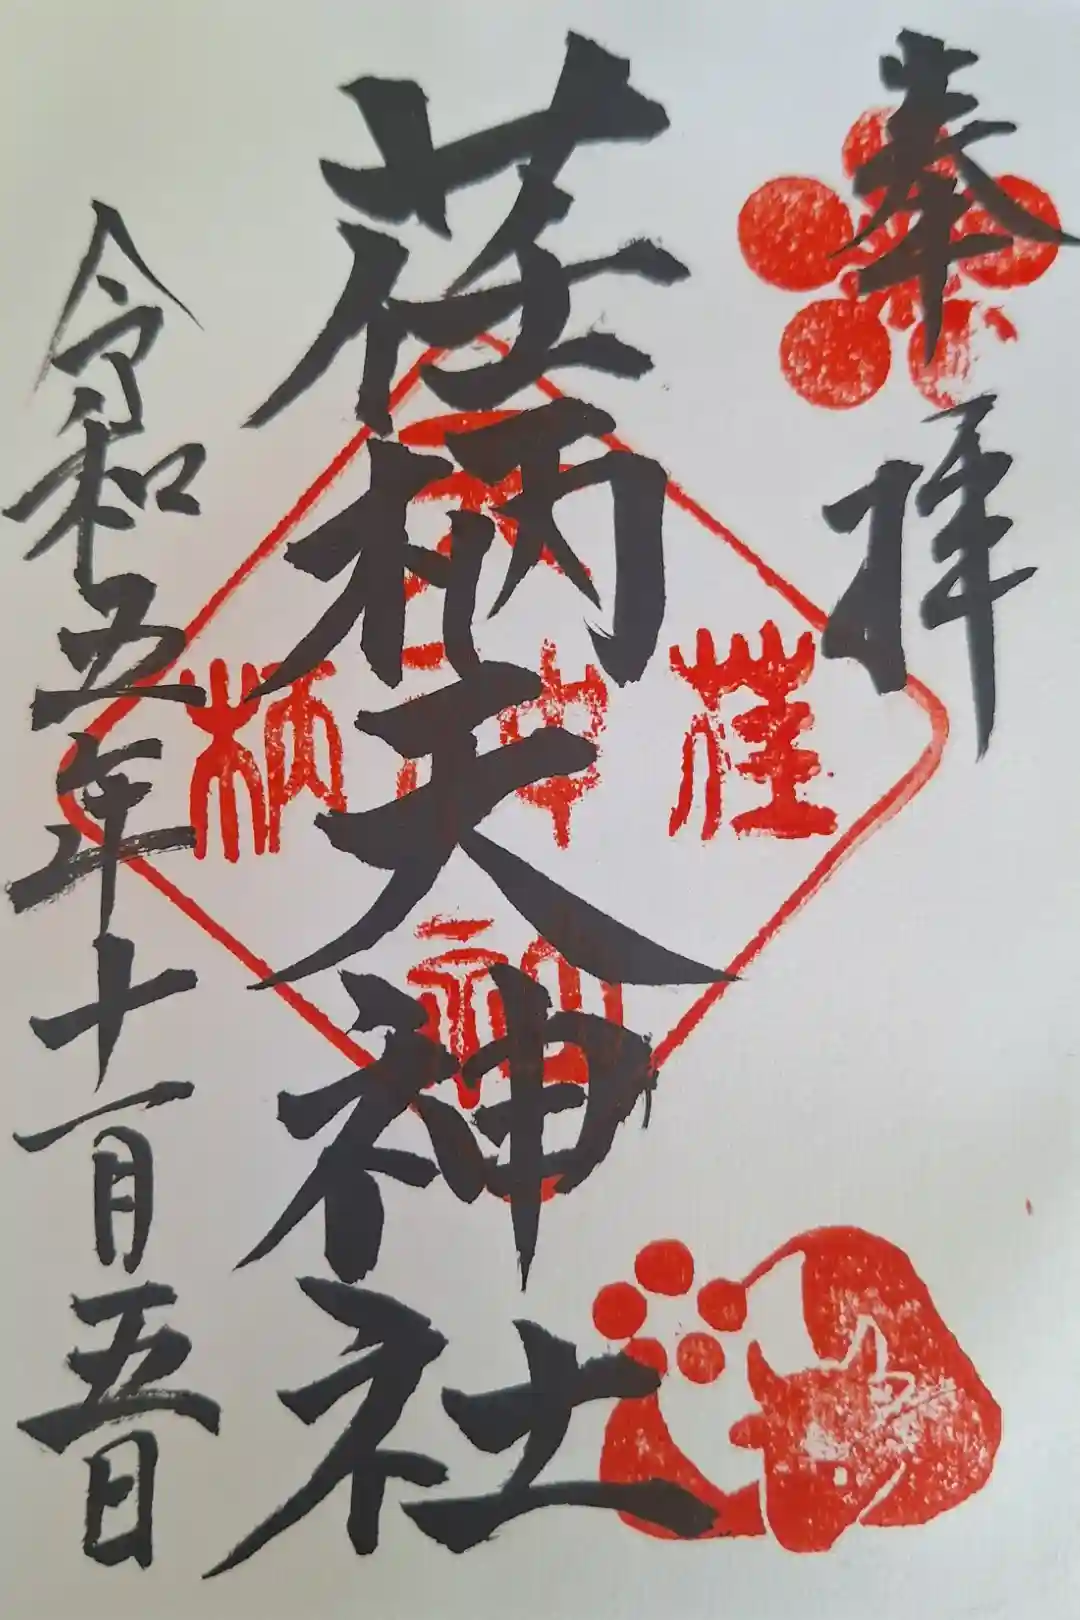 奉拝
荏柄天神社
令和五年十一月五日